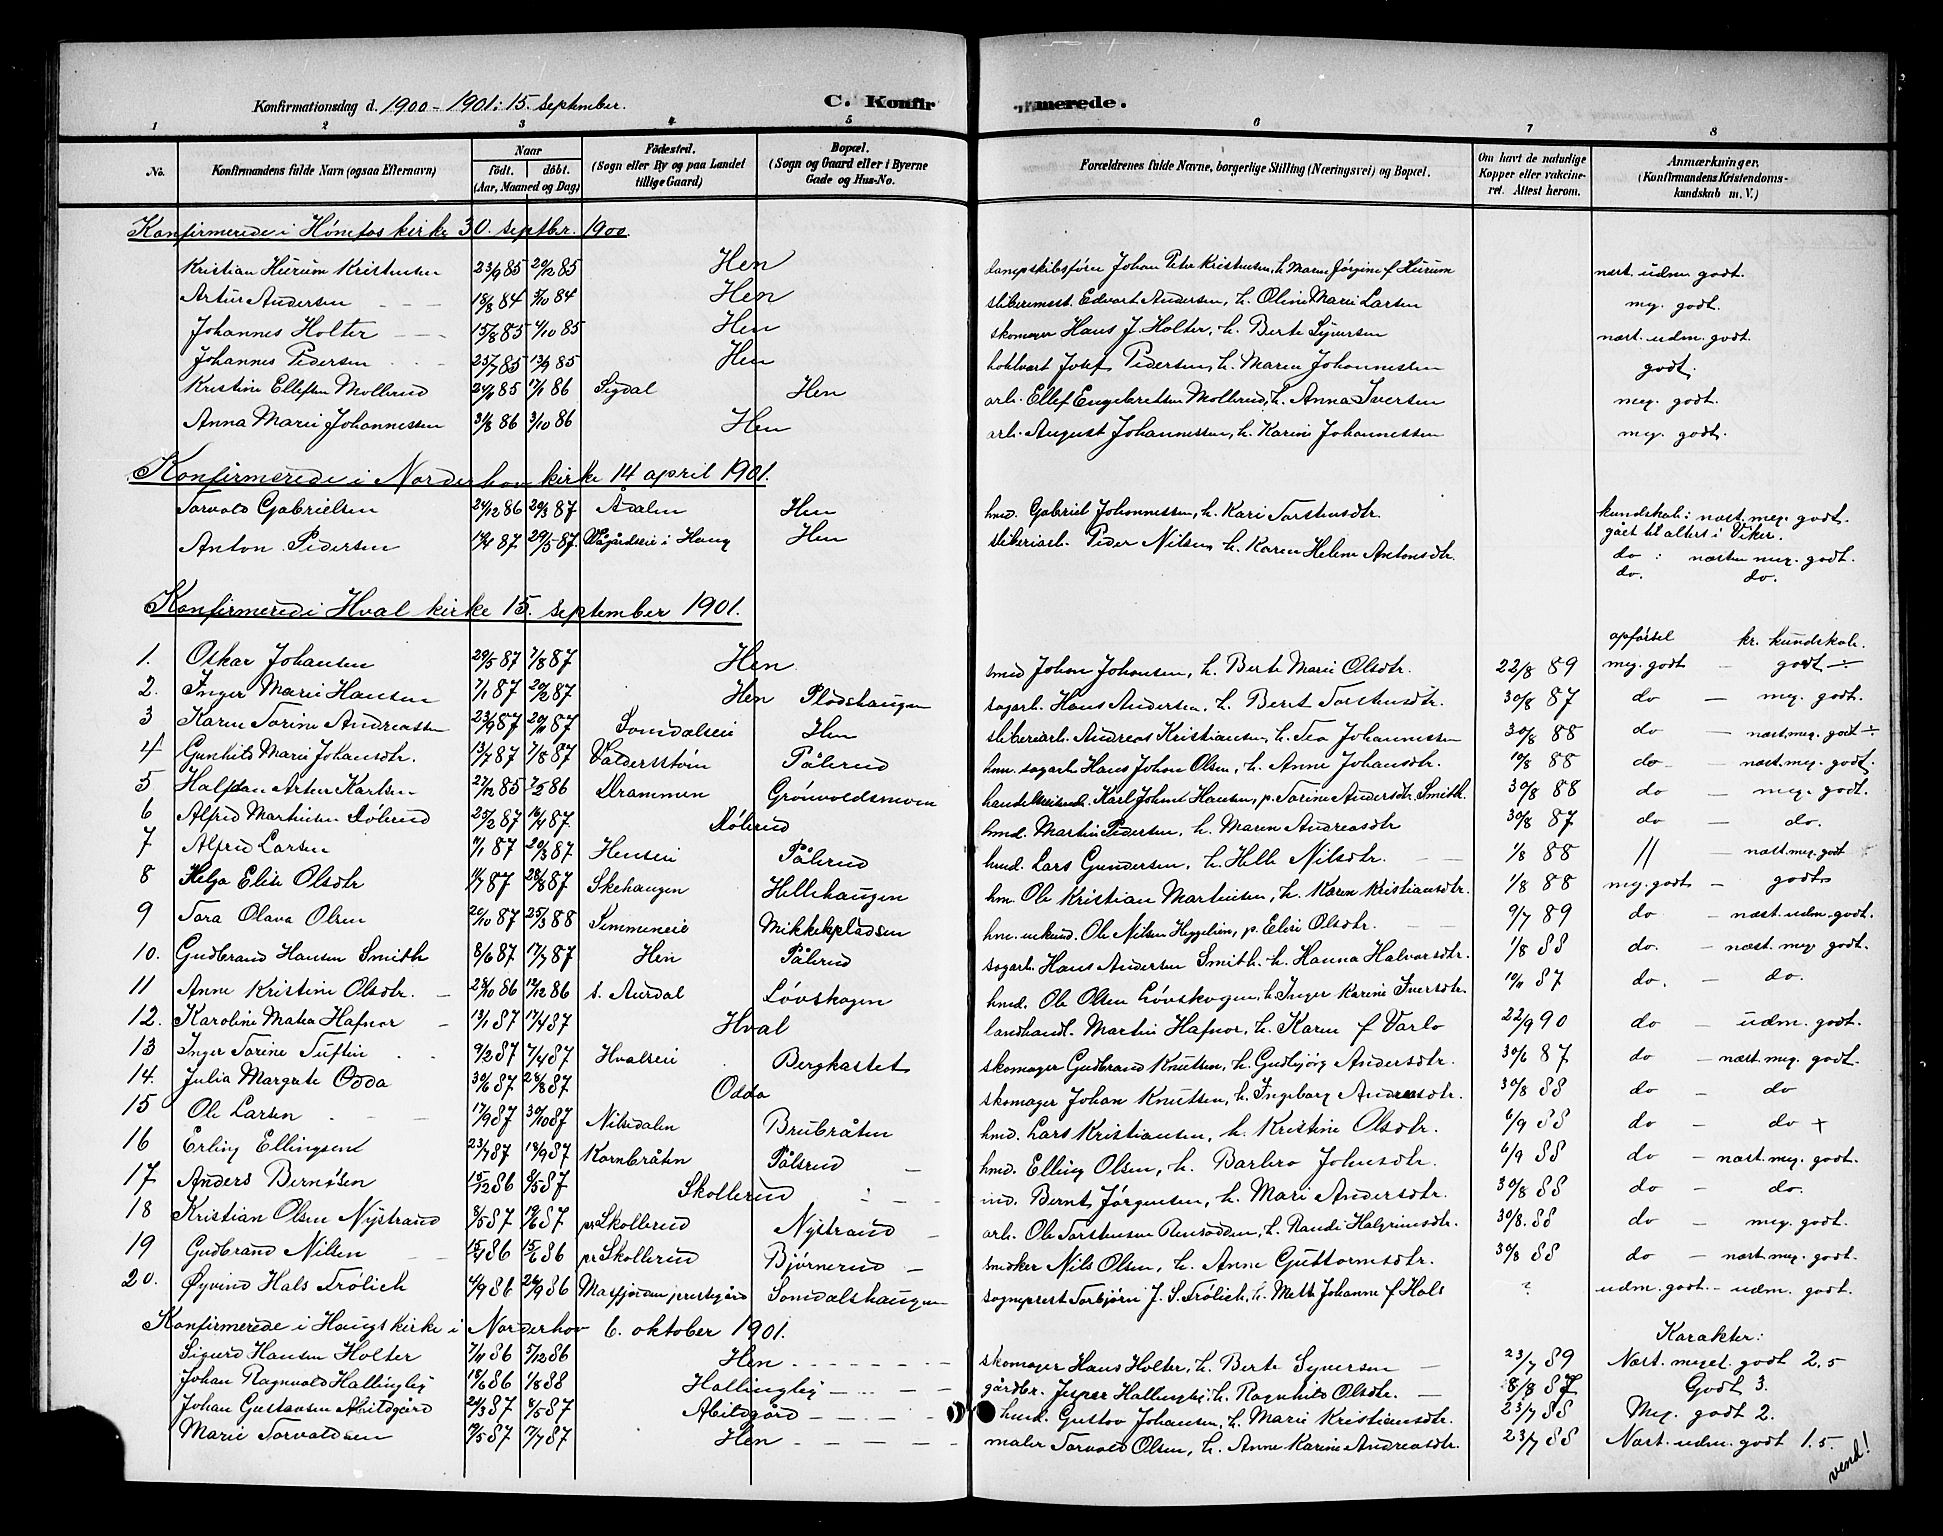 Konfirmationsdag d. 1900 - 1901: 15. september. C. Konfirmerede.
1 2 3 4 5 6 7 8
No. Konfirmandens fulde Navn (ogsaa Efternavn) Naar født. døbt. (Aar, Maaned og Dag) Fødested. (Sogn eller By og paa Landet tillige Gaard) Bopæl. (Sogn og Gaard eller i Byerne Gade og Hus-No. Forældrenes fulde Navne, borgerlige Stilling (Næringsvei) og Bopæl. Om havt de naturlige Kopper eller vakcineret. Attest herom. Anmærkninger. (Konfirmandens Kristendomskundskab m. V.)
Konfirmerede i Hønefos kirke 30. septbr. 1900.
Kristian Hurum Kristensen 23/9 85 20/12 85 Hen Johan Peter Kristensen, h. Maren Jørgine f Hurum næst. udm. godt.
Artur Andersen 18/8 84 5/10 84 Hen Edvart Andersen, h. Oline Marie Larsen meg. godt.
Johannes Holter 15/8 85 4/10 85 Hen skomager Hans J. Holter, h. Berte Syversen næst. udm. godt.
Johannes Pedersen 25/7 85 13/9 85 Hen Josef Pedersen, h. Maren Johannessen godt.
Kristine Ellefsen Mollerud 85 17/1 86 Sigdal Hen arb. Ellef Engebretsen Mollerud, h. Anna Iversen meg. godt.
Anna Marie Johannessen 31/8 86 3/10 86 Hen arb. August Johannessen, h. Karine Johannessen meg. godt.
Konfirmerede i Norderhov kirke 14 april 1901.
Torvald Gabrielsen 24/12 86 20/3 87 Ådalen Hen hmd. Gabriel Johannessen, h. Kari Torstensdtr. kundskab: næst. meg. godt.
gået til alters i Viker.
Anton Pedersen 87 29/5 87. i Haug Hen sliberiarb. Peder Nilsen, h. Karen Helene Antonsdtr. do : næsten meg. godt.
do. do.
Konfirmerede i Hval kirke 15. september 1901.
opførsel kr. kundskab.
1. Oskar Johansen 29/5 87 7/8 87 Hen smed Johan Johansen, h. Berte Marie Olsdtr. 22/8 89 meg. godt - godt ÷
2. Inger Marie Hansen 7/1 87 20/2 87 Hen Plodshaugen sagarb. Hans Andersen, h. Berit Torstensdtr. 30/8 87 do - meg. godt.
3 Karen Torine Andreassen 23/9 87 20/11 87 Somdalseie Hen sliberiarb. Andreas Kristiansen, h. Tea Johannessen 30/8 88 do - næst. meg. godt ÷
4 Gunhild Marie Johansdtr. 13/7 87 7/8 87 Valdersstøen Pålerud hmd. sagarb. Hans Johan Olsen, h. Anne Johansdtr. 10/8 88 do - næst. meg. godt.
5 Halfdan Artur Karlsen 27/12 85 86 Drammen Grønvoldsmoen Karl Johan Hansen, p. Torine Andersdtr. Smith. 30/8 88 do - meg. godt.
6 Alfred Martinsen Dølerud 25/2 87 16/4 87. Dølerud hmd. Martin Pedersen, h. Maren Andreasdtr 30/8 87 do - do.
7 Alfred Larsen 87 20/3 87 Henseie Pålerud hmd. Lars Gundersen, h. Helle Nilsdtr. 1/8 88 // - næst. meg. godt
8 Helga Elise Olsdtr 87 28/8 87 Skehaugen Hellehaugen hm. Ole Kristian Martinsen, h. Karen Kristiansdtr. 1/8 88 meg. godt - godt
9 Tora Olava Olsen 20/10 87 25/3 88 Semmeneie Mikkelspladsen hm. Ole Nilsen Heggelien, p. Elise Olsdtr. 9/7 89 do - næst. udm. godt.
10. Gudbrand Hansen Smith 8/6 87 17/7 87 Hen Pålerud sagarb. Hans Andersen Smith. h. Hanna Halvorsdtr. 1/8 88 do. - næst. meg. godt.
11 Anne Kristine Olsdtr. 28/10 86 12/12 86 s. Aurdal Løvskogen hmd. Ole Olsen Løvskogen, h. Inger Karine Iversdtr. 10/11 87 do. - do.
12. Karoline Matea Hafnor 13/1 87 17/4 87 Hval landhandl. Martin Hafnor, h. Karen f Varlo 22/9 90 do - udm. godt.
13 Inger Torine Tuftin 9/2 87 7/4 87 Hvalseie Bergkastet skomager Gudbrand Knutsen, h. Gudbjørg Andersdtr. 30/6 87 do - næst. meg. godt.
14. Julia Margrete Odda 30/6 87 28/8 87 Odda skomager Johan Knutsen, h. Ingeborg Andreasdtr. 30/8 88 do - do
15 Ole Larsen 17/9 87 30/10 87 Nilsedalen Brubråten hmd. Lars Kristiansen, h. Kristine Olsdtr. 6/9 88 do - do +
16 Erling Ellingsen 23/7 87 18/9 87 Kornbråten Pålsrud hmd. Elling Olsen, h. Barbro Johnsdtr. 6/9 88 do - næst. meg. godt.
17 Anders Berntsen 15/12 86 8/5 87 Skollerud ind. Bernt Jørgensen, h. Mari Andersdtr. 30/8 88 do - do.
18 Kristian Olsen Nystrand 8/5 87 19/6 87 pr Skollerud Nystrand arb. Ole Torstensen Rensodden, h. Randi Halgrimsdtr. 30/8. 88 do - meg. godt.
19 Gudbrand Nilsen 15/4 86 15/6 86 pr Skollerud Bjørnerud snedker Nils Olsen, h. Anne Guttormsdtr. 30/8 88 do - næst. meg. godt.
20. Øyvind Hals Frölich 4/9 86 26/9 86 Masfjorden prestegård Somdalshaugen sogneprest Torbjørn J. S. Frölich, h. Mett Johanne f Hals ? udm. godt. - udm. godt.
Konfirmerede i Haugs kirke i Norderhov 6. oktober 1901. Karakter:
Sigurd Hansen Holter 7/11 86 5/12 86 Hen skomager Hans Holter, h. Berte Syversen 23/7 89 Næst. meget godt 2.5
Johan Ragnvald Hallingby 19/6 86 1/8 88 Hallingby gårdbr. Jesper Hallingby, h. Ragnhild Olsdtr. 8/8 87 Godt 3.
Johan Gustavsen Abildgård 24/3 87 8/5 87 Abildgård hmd. Gustav Johansen, h. Marie Kristiansdtr. 23/7 88 Meg. godt 2.
Marie Torvaldsen 19/5 87 17/7 87 Hen maler Torvald Olsen, h. Anne Karine Andreasdtr. 23/7 88 Næst. udm. godt 1.5.
vend!